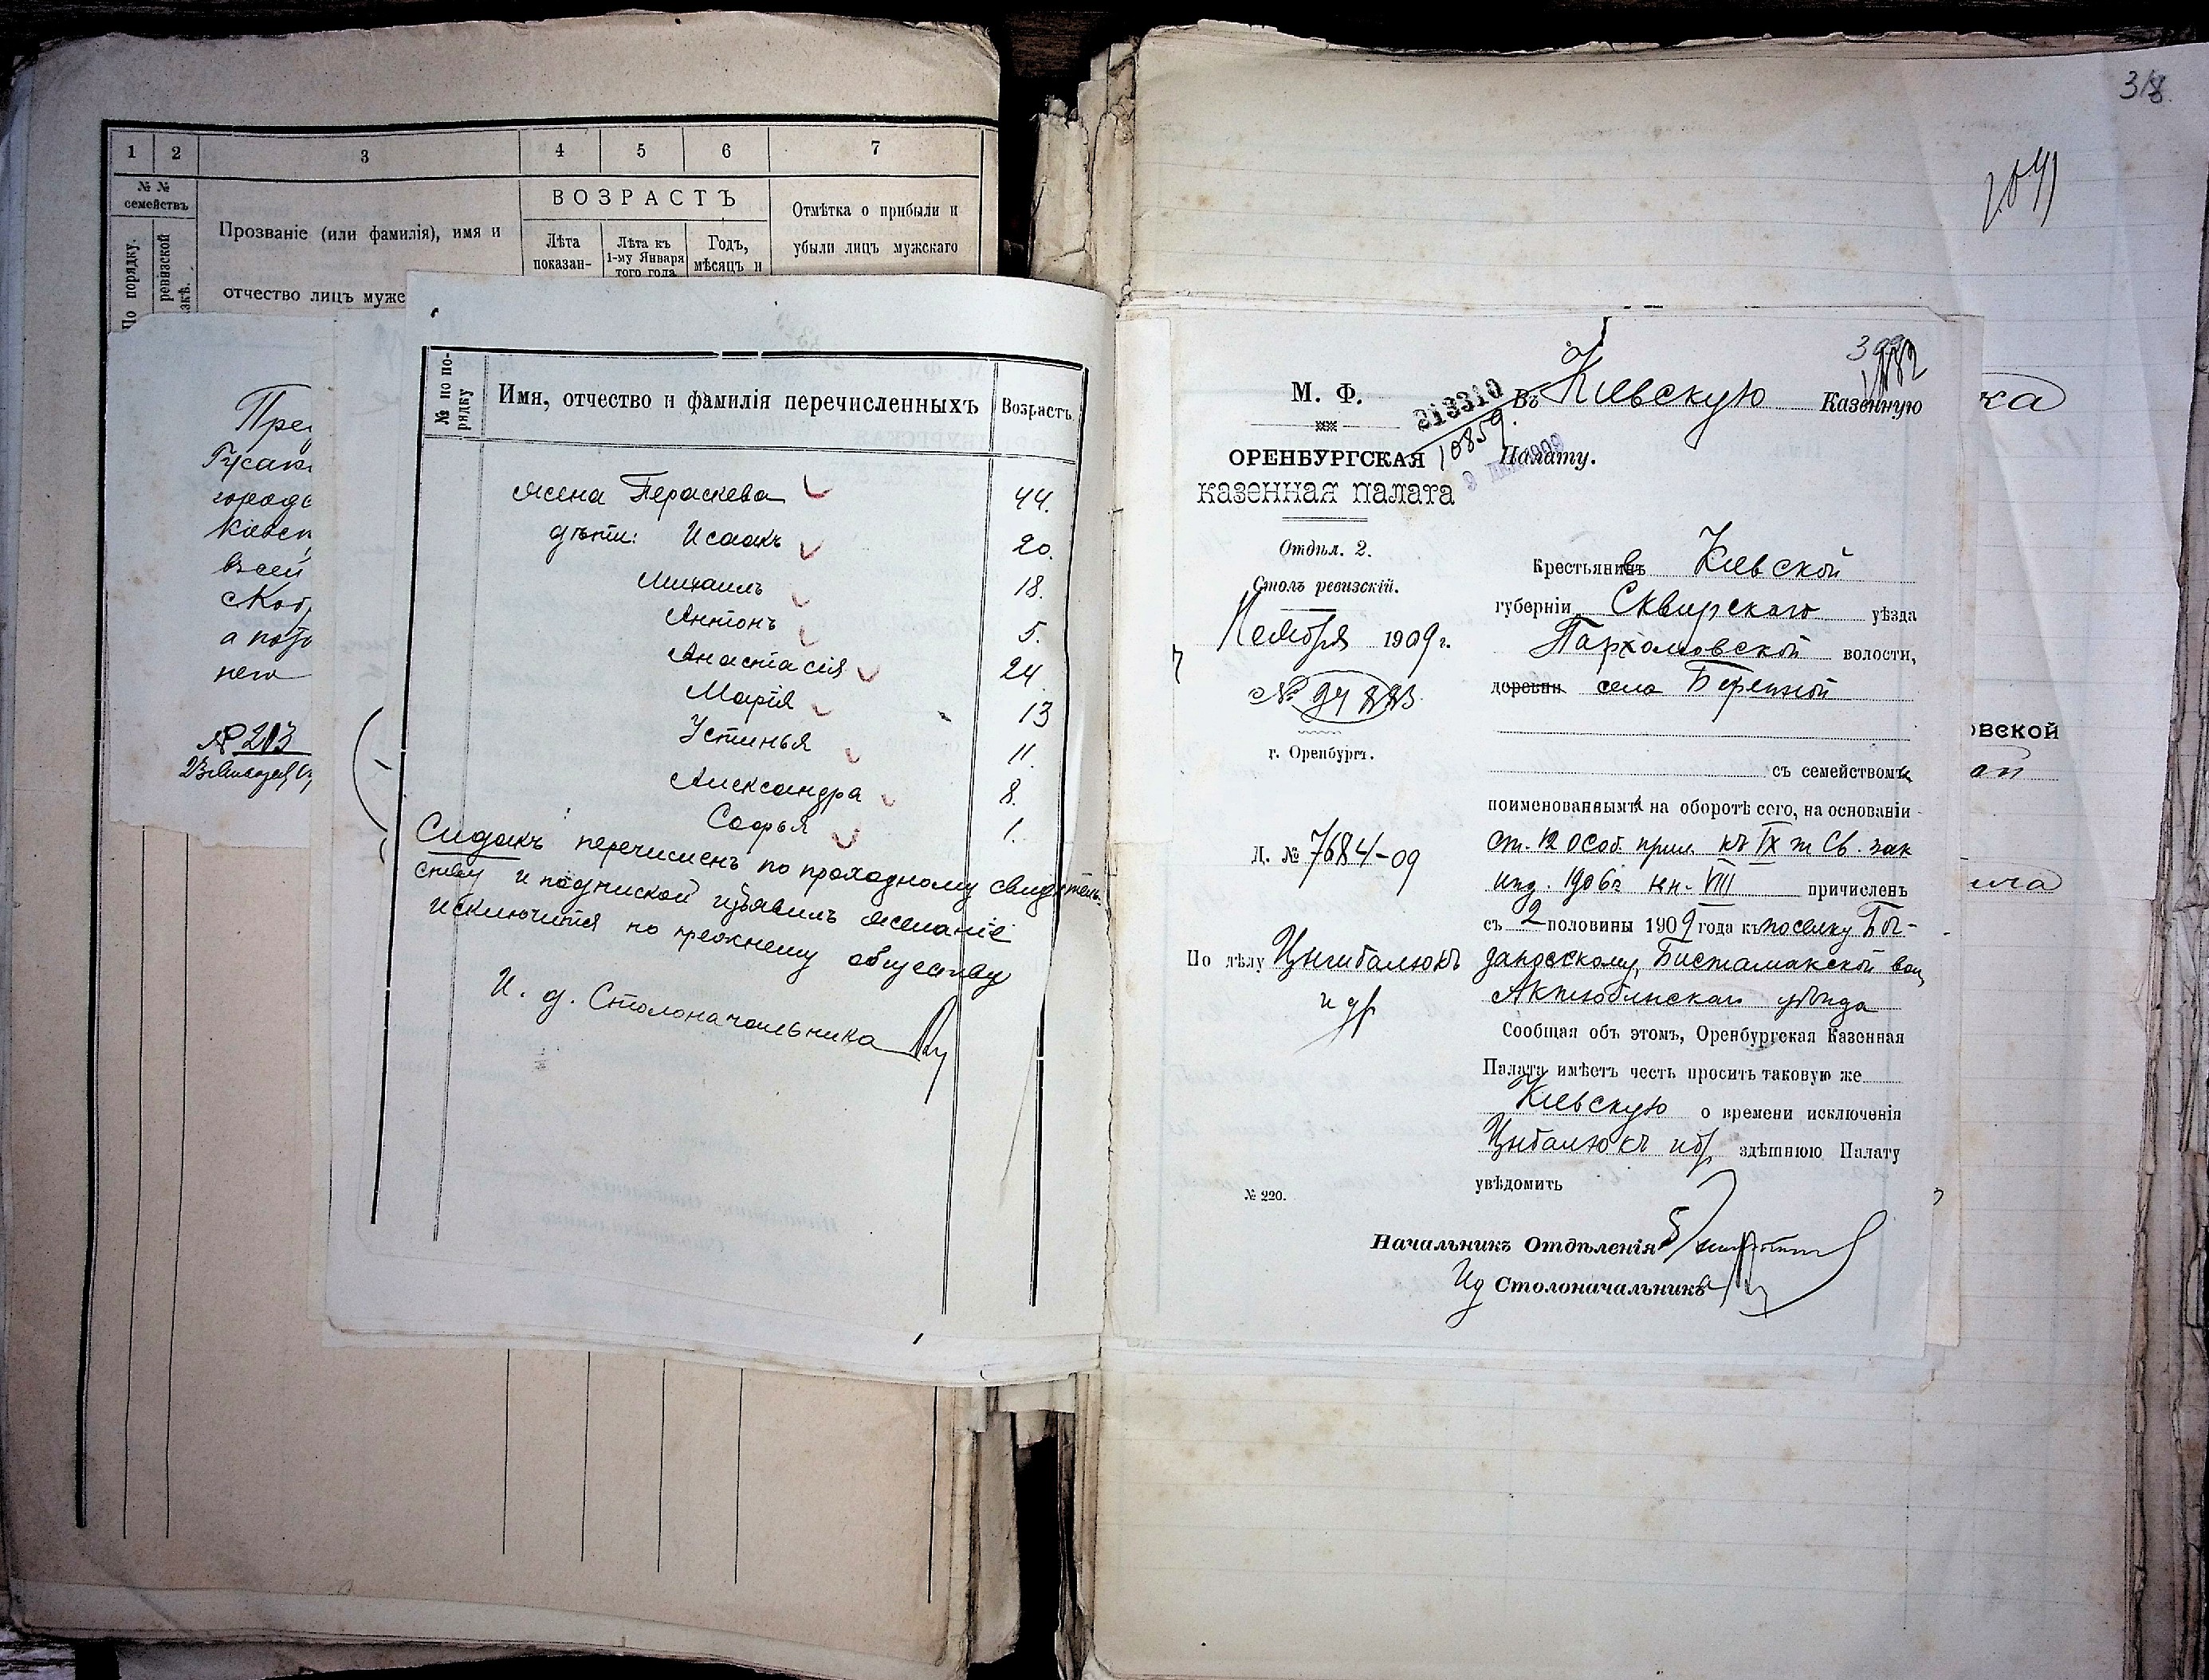 1 2 3 4 5 6 7
№ № семействъ
По порядку.
ревизской
Прозваніе (или фамилія), имя и
отчество лицъ муже
ВОЗРАСТЪ
Лѣта показан-
Лѣта къ 1-му Января того года
Годъ, мѣсяцъ и
Отмѣтка о прибыли и
убыли лицъ мужскаго
№ 213
№ по по-рядку
Имя, отчество и фамилія перечисленныхъ
Возрастъ
жена Параскева 44.
дѣти: Исаакъ 20.
Михаилъ 18.
Антонъ 5.
Анастасія 24
Марія 13
Устинья 11.
Александра 8.
Софья 1.
Сидакъ перечисленъ по проходному свидѣтель-
ству и подпиской изъявилъ желаніе
исключится по прежнему обществу
И. д. Столоначальника
318.
М. Ф.
ОРЕНБУРГСКАЯ
КАЗЕННАЯ ПАЛАТА
Отдѣл. 2.
Столъ ревизскій.
Ноября 1909 г.
№
г. Оренбургъ.
Д. № 7684-09
По дѣлу Цыбалюкъ
и др
№ 220.
213310
10859.
Въ Кіевскую Казенную
Палату.
Крестьянинъ Кіевской
губерніи Сквирскаго уѣзда
Пархомовской волости,
деревни села Березной
съ семействомъ
поименованнымъ на оборотѣ сего, на основаніи
ст. 12 особ. прил. къ IX т Св. зак
изд. 1906 г кн. VIII причисленъ
съ 2 половины 1909 года къ поселку Бог-
дановскому, Бистамакской вол,
Актюбинскаго уѣзда
Сообщая объ этомъ, Оренбургская Казенная
Палата имѣетъ честь просить таковую же
Кіевскую о времени исключенія
Цыбалюкъ и др здѣшнюю Палату
увѣдомить
Начальникъ Отдѣленія
Ид Столоначальника
ка
овской